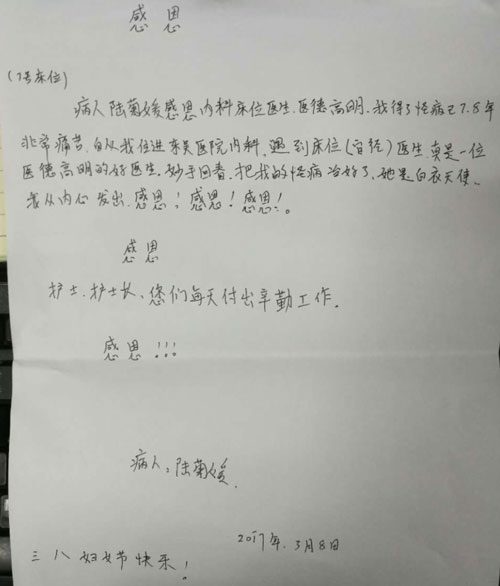 感恩
(7号床位)
病人陆菊媛感恩内科床位医生.医德高明.我得了怪病已7.8年
非常痛苦.自从我住进东吴医院内科.遇到床位(宦轶)医生.真是一位
医德高明的好医生.妙手回春.把我的怪病治好了.她是白衣天使.
我从内心发出.感恩!感恩!感恩!。
感恩
护士.护士长、您们每天付出辛勤工作。
感恩!!!
病人:陆菊媛.
2017年.3月8日
三八妇女节快乐!